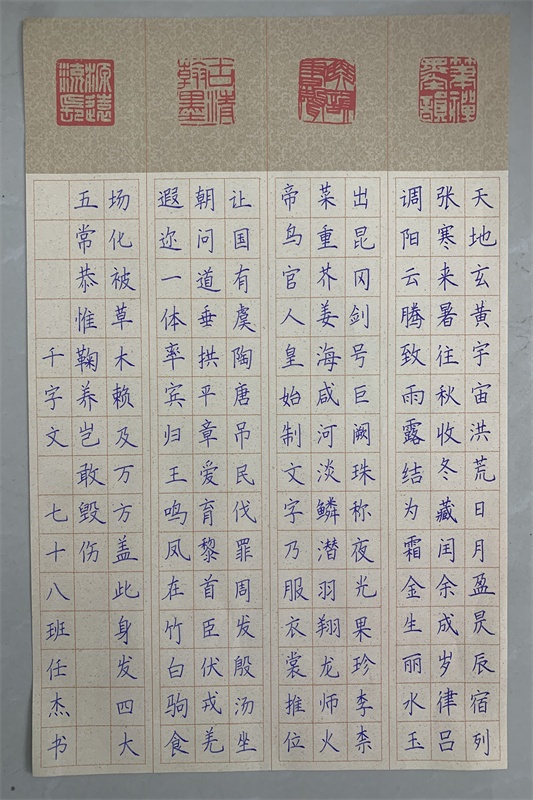 源远流长
天地玄黄宇宙洪荒日月盈昃辰宿列
张寒来暑往秋收冬藏闰余成岁律吕
调阳云腾致雨露结为霜金生丽水玉
出昆冈剑号巨阙珠称夜光果珍李柰
菜重芥姜海咸河淡鳞潜羽翔龙师火
帝鸟官人皇始制文字乃服衣裳推位
让国有虞陶唐吊民伐罪周发殷汤坐
朝问道垂拱平章爱育黎首臣伏戎羌
遐迩一体率宾归王鸣凤在竹白驹食
场化被草木赖及万方盖此身发四大
五常恭惟鞠养岂敢毁伤
千字文 七十八班任杰书